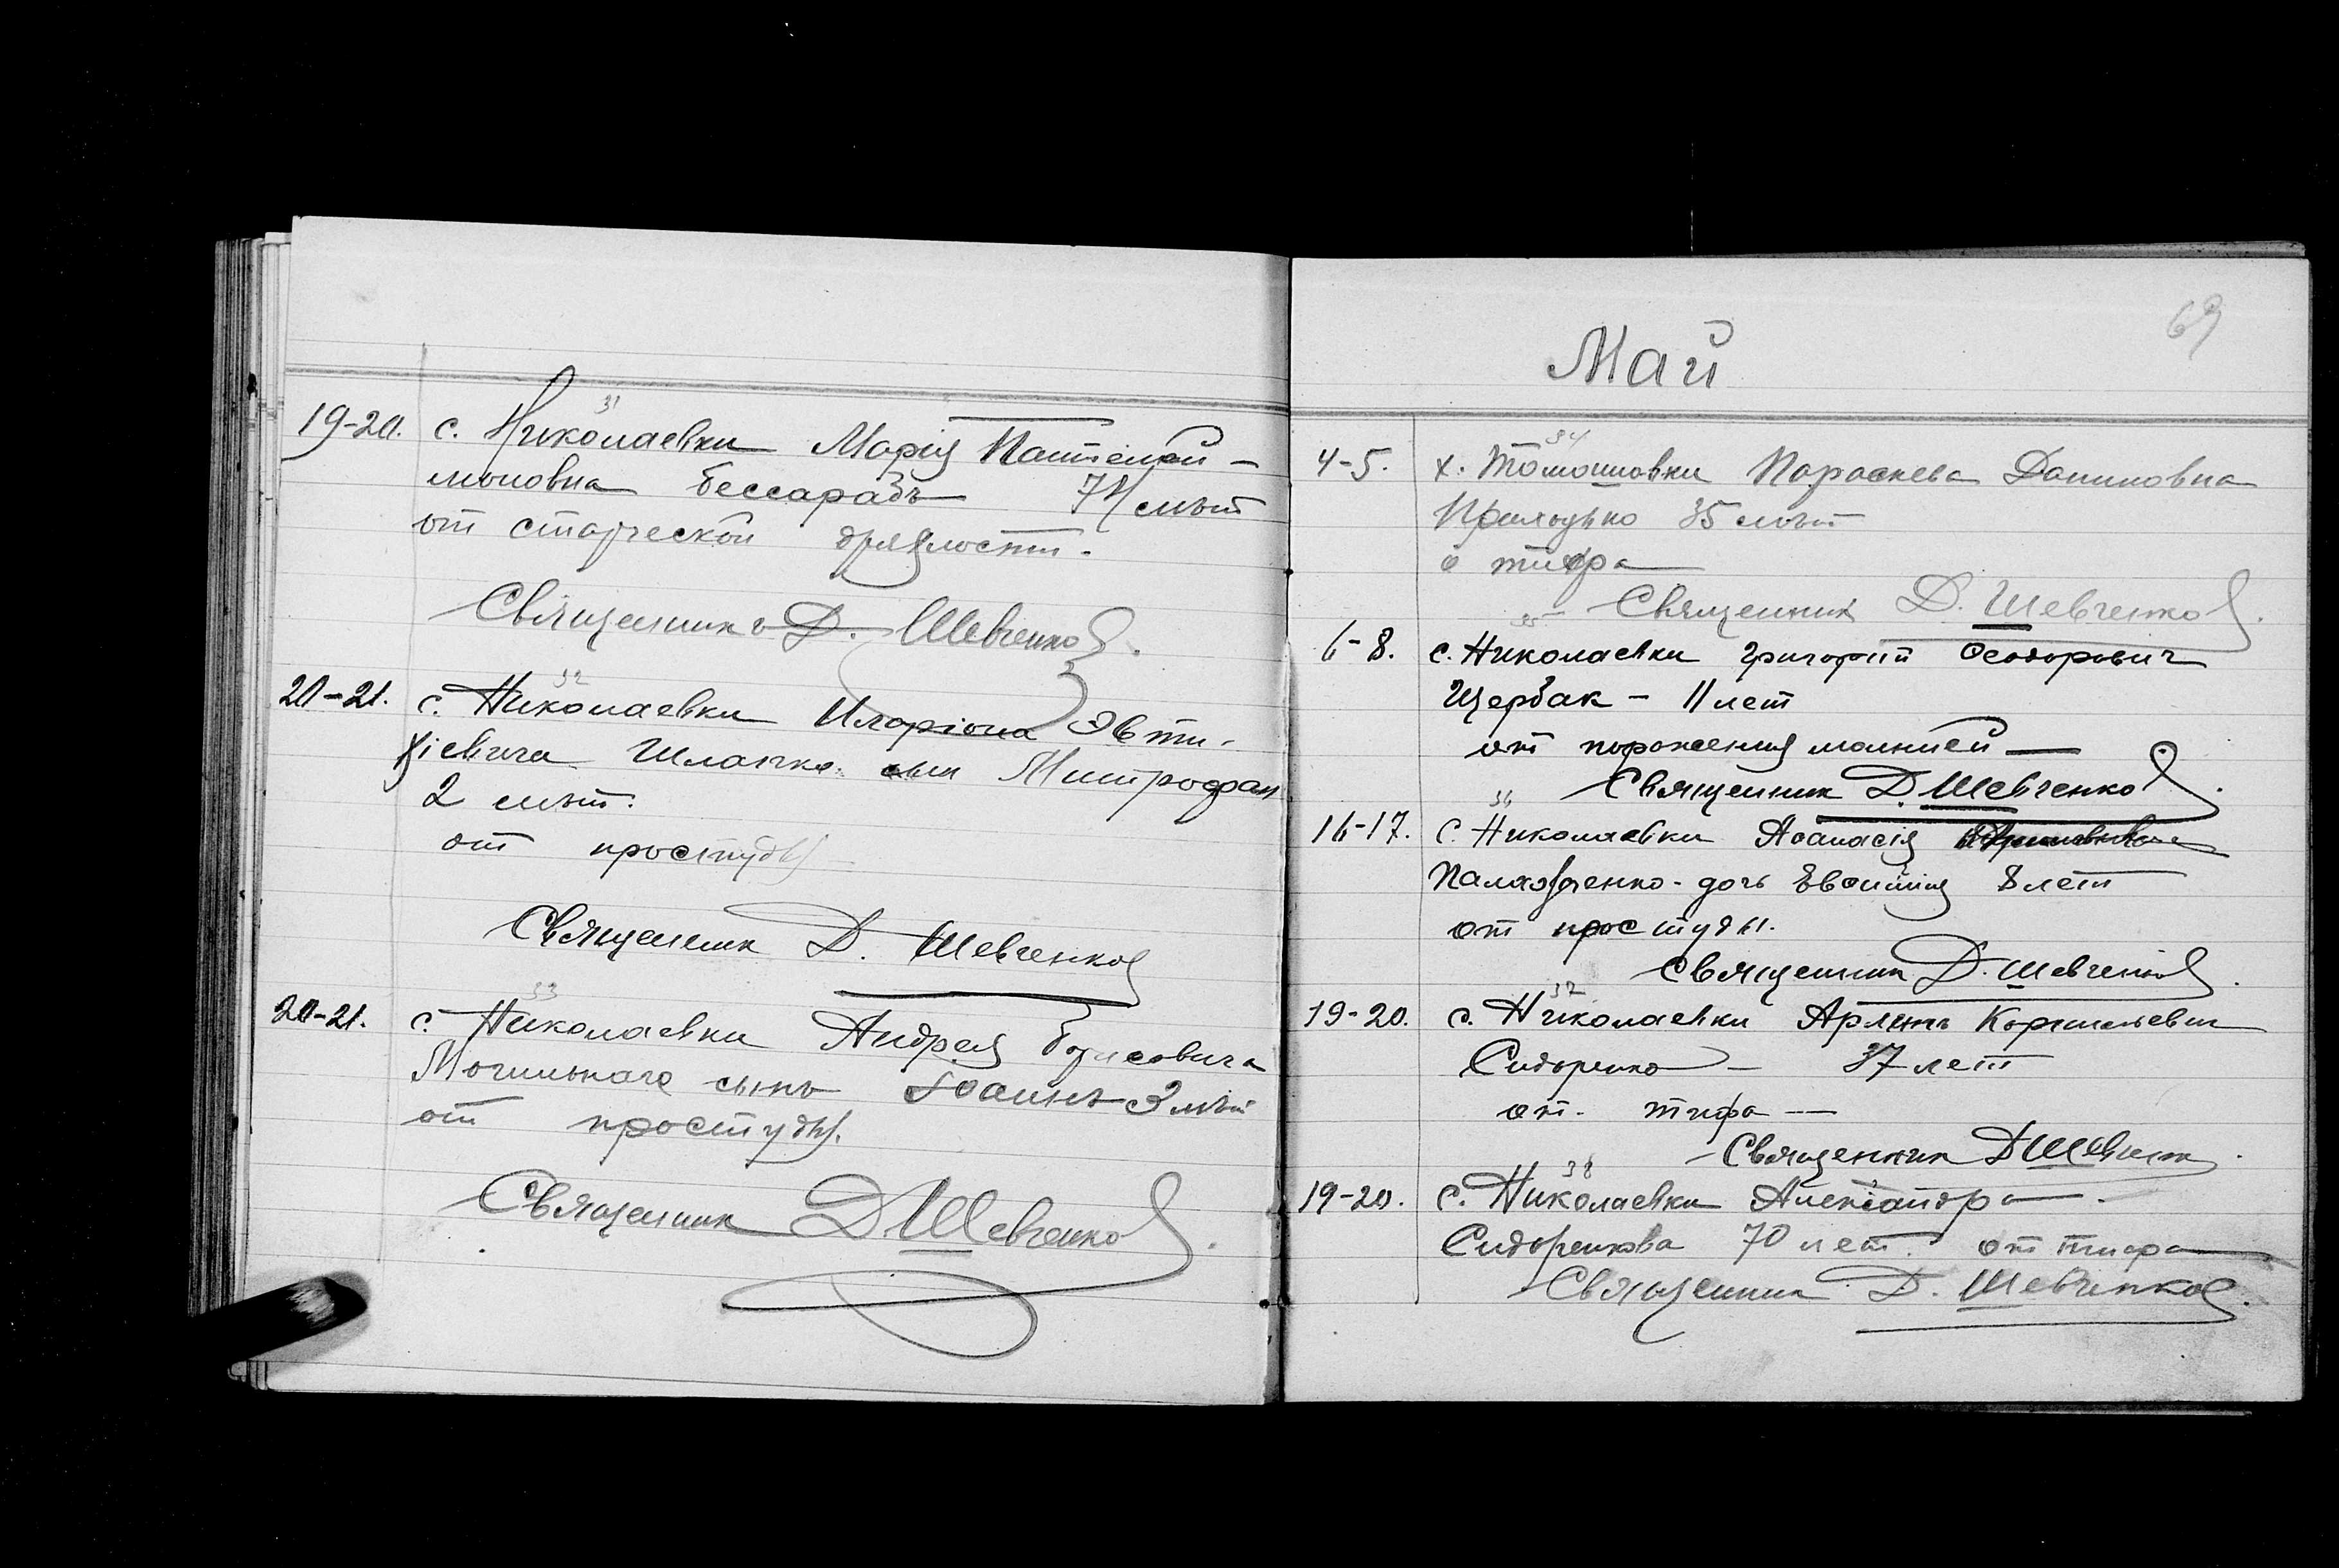 31
19-20. с. Николаевки Марія Пантелей-
моновна Бессарабъ 74 лѣт
от старческой дряхлости.
Священникъ Д. Шевченко.
32
20-21. с. Николаевки Иларіона Эвти-
хіевича Шлапко сын Митрофан
2 лѣт.
от простуды
Священник Д. Шевченко
33
20-21. с. Николаевки Андрея Борисовича
Могильнаго сынъ Іоаннъ 3 лѣт
от простуды.
Священник Д Шевченко.
69
Май
34
4-5. х. Томашовки Параскева Даниловна
Приходько 35 лѣт
о тифа
Священник Д. Шевченко.
35
6-8. с. Николаевки Григорий Феодорович
Щербак - 11 лет
от поражения молнией
Священник Д. Шевченко.
36
16-17. с. Николаевки Афанасія
дочь 8 лет
от простуды.
Священник Д. Шевченко.
37
19-20. с. Николаевки Корнильевич
Сидоренко - 37 лет
от. тифа
Священник Д Шевченко.
38
19-20. с. Николаевки Александра.
Сидоренкова 70 лет. от тифа
Священник Д. Шевченко.